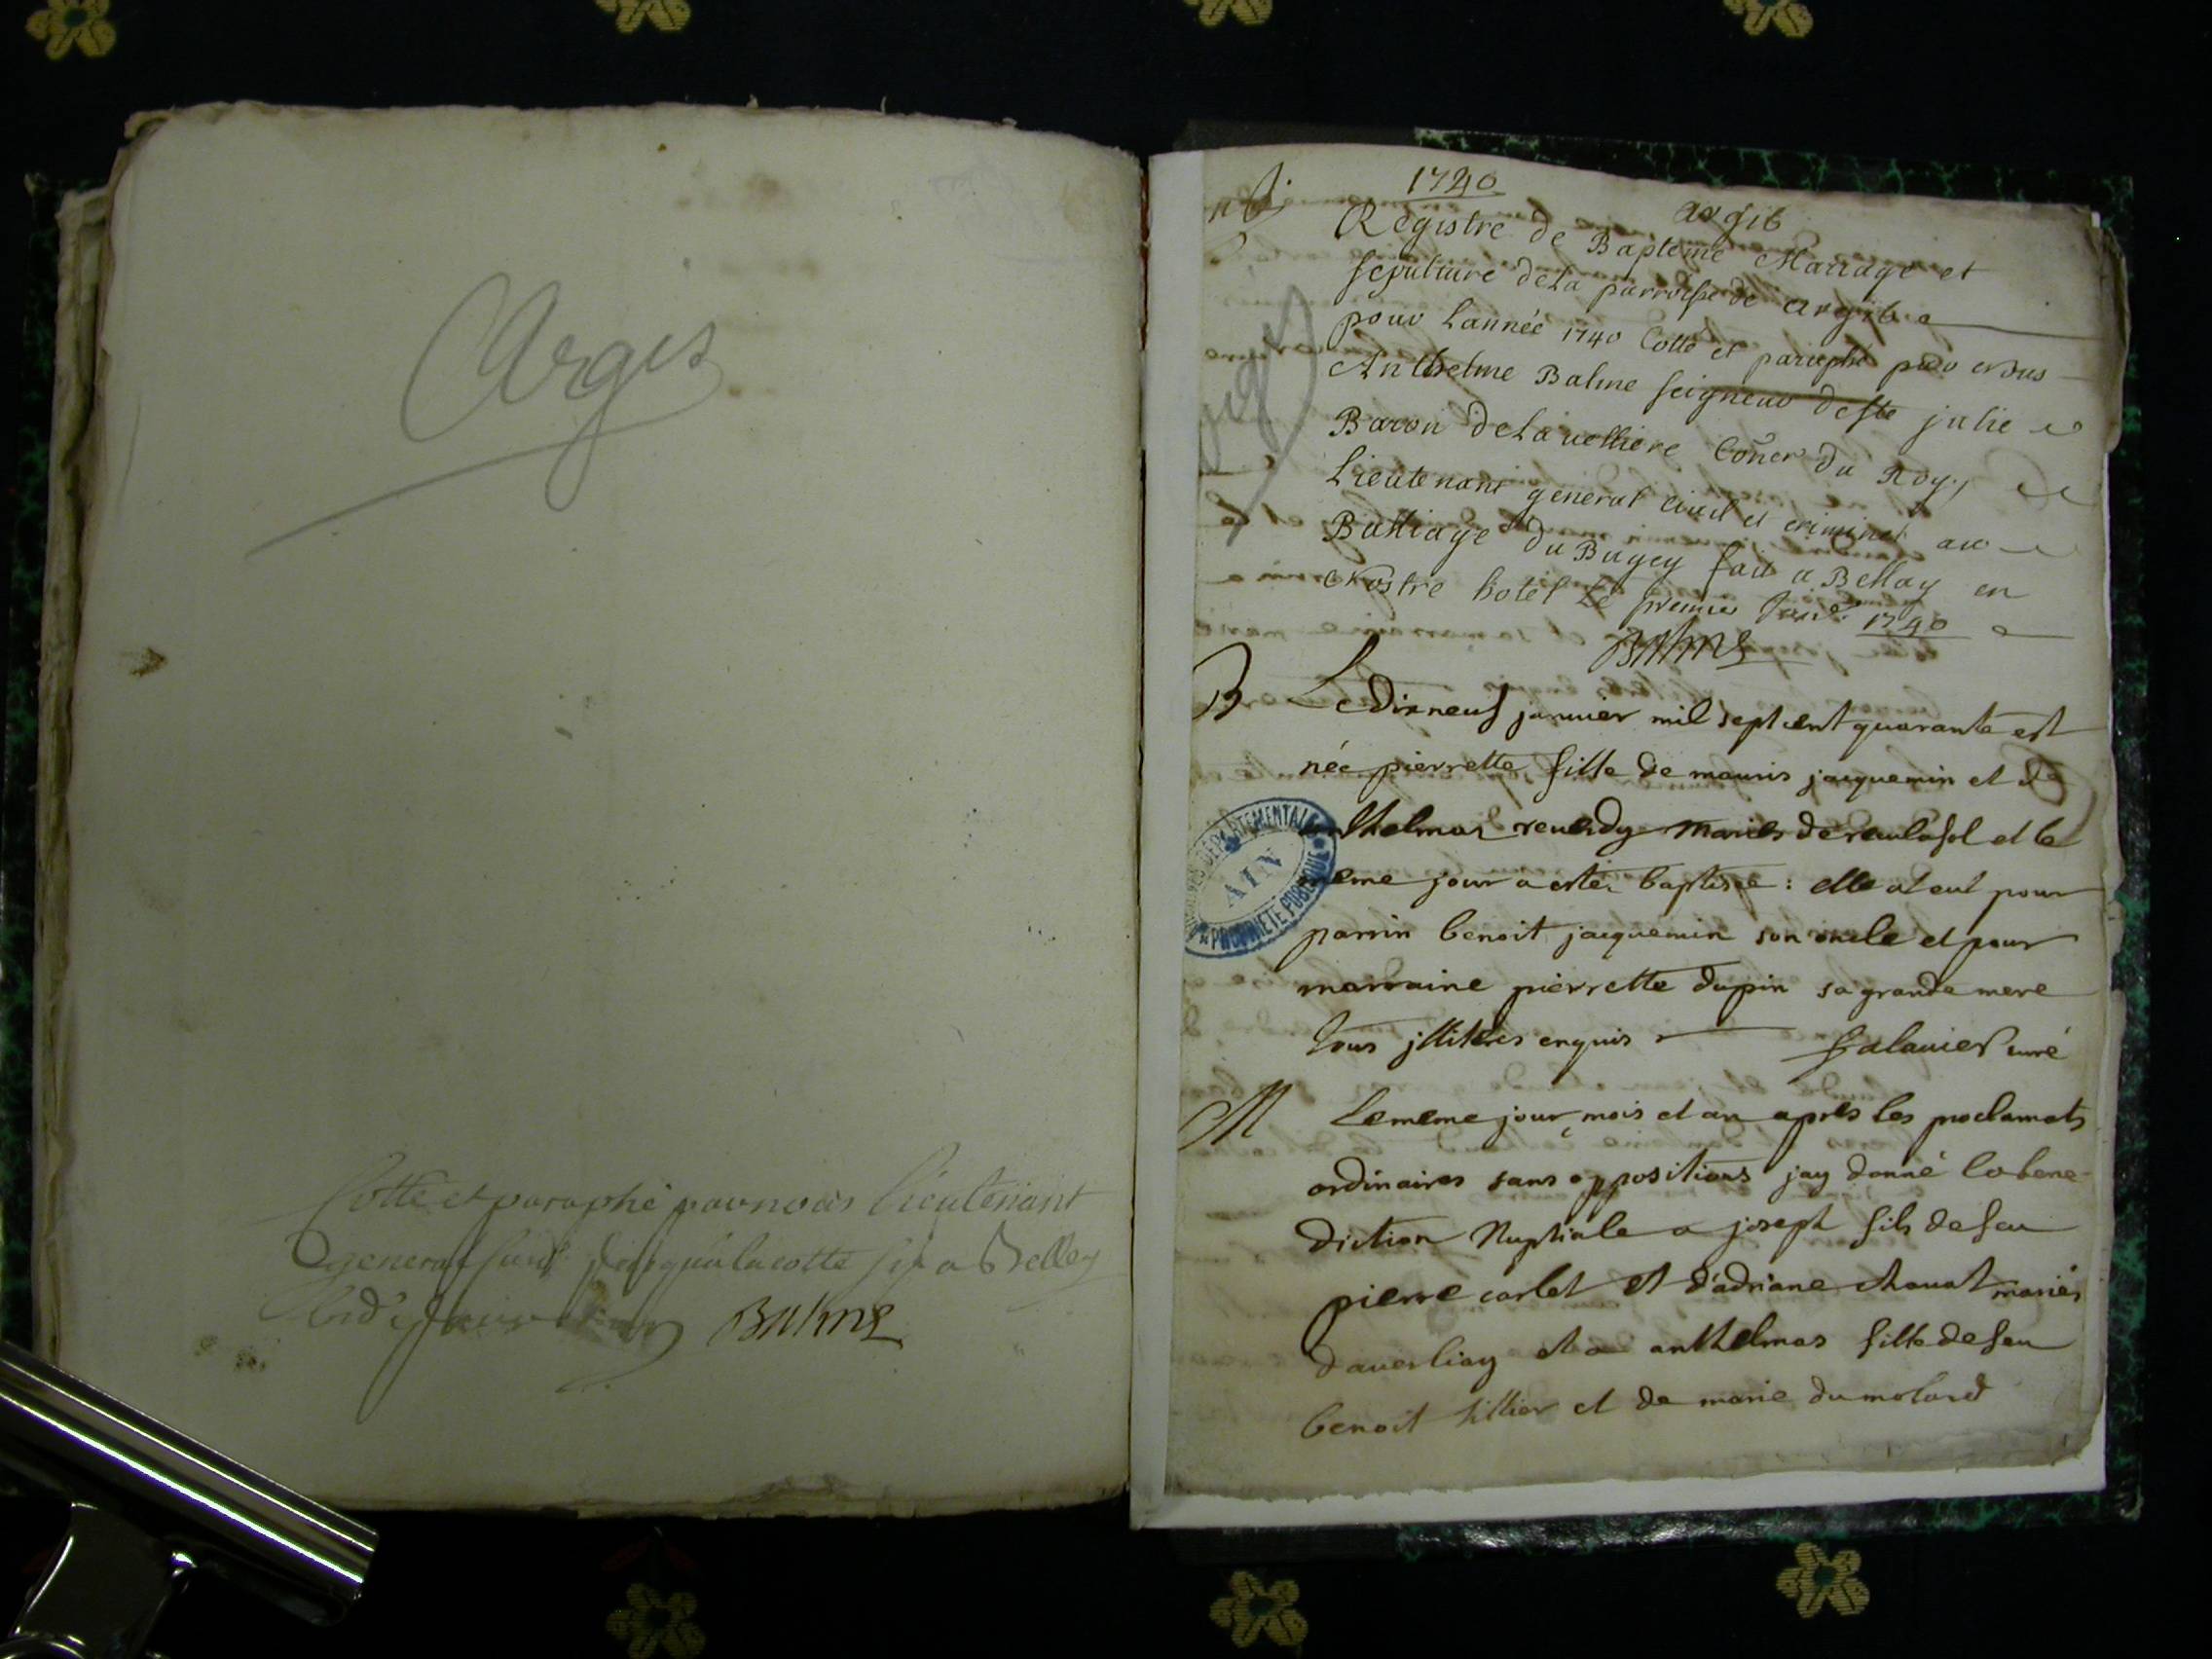 Argis
Cotté et paraphé par nous Lieutenant
general jusqu'à la cotte six a Belley
Balme
1740
argis
Registre de Bapteme Mariage et
sepulture de La parroisse de argis
pour Lannée 1740 Cotté et paraphé par nous
Anthelme Balme seigneur de Ste julie
Baron de La velliere Coner du Roy,
Lieutenant general civil et criminel au
Balliage du Bugey fait a Bellay en
Nostre hotel Le premier 1740
Balme
B
Le dixneuf janvier mil sept cent quarante est
née pierrette fille de mauris jacquemin et de
anthelmas reverdy mariés de et le
meme jour a esté baptisée : elle at eut pour
parrin benoit jacquemin son oncle et pour
marraine pierrette dupin sa grande mere
tous jlliteres enquis falavier curé
ARCHIVES DÉPARTEMENTALES
AIN
PROPRIÉTÉ PUBLIQUE
M
Le meme jour, mois et an apres les proclamats
ordinaires sans oppositions jay donné la bene-
diction Nuptiale a joseph fils de feu
pierre carlet et d'adriane chavat mariés
daverliay et a anthelmas fille de feu
benoit tillier et de marie du molard